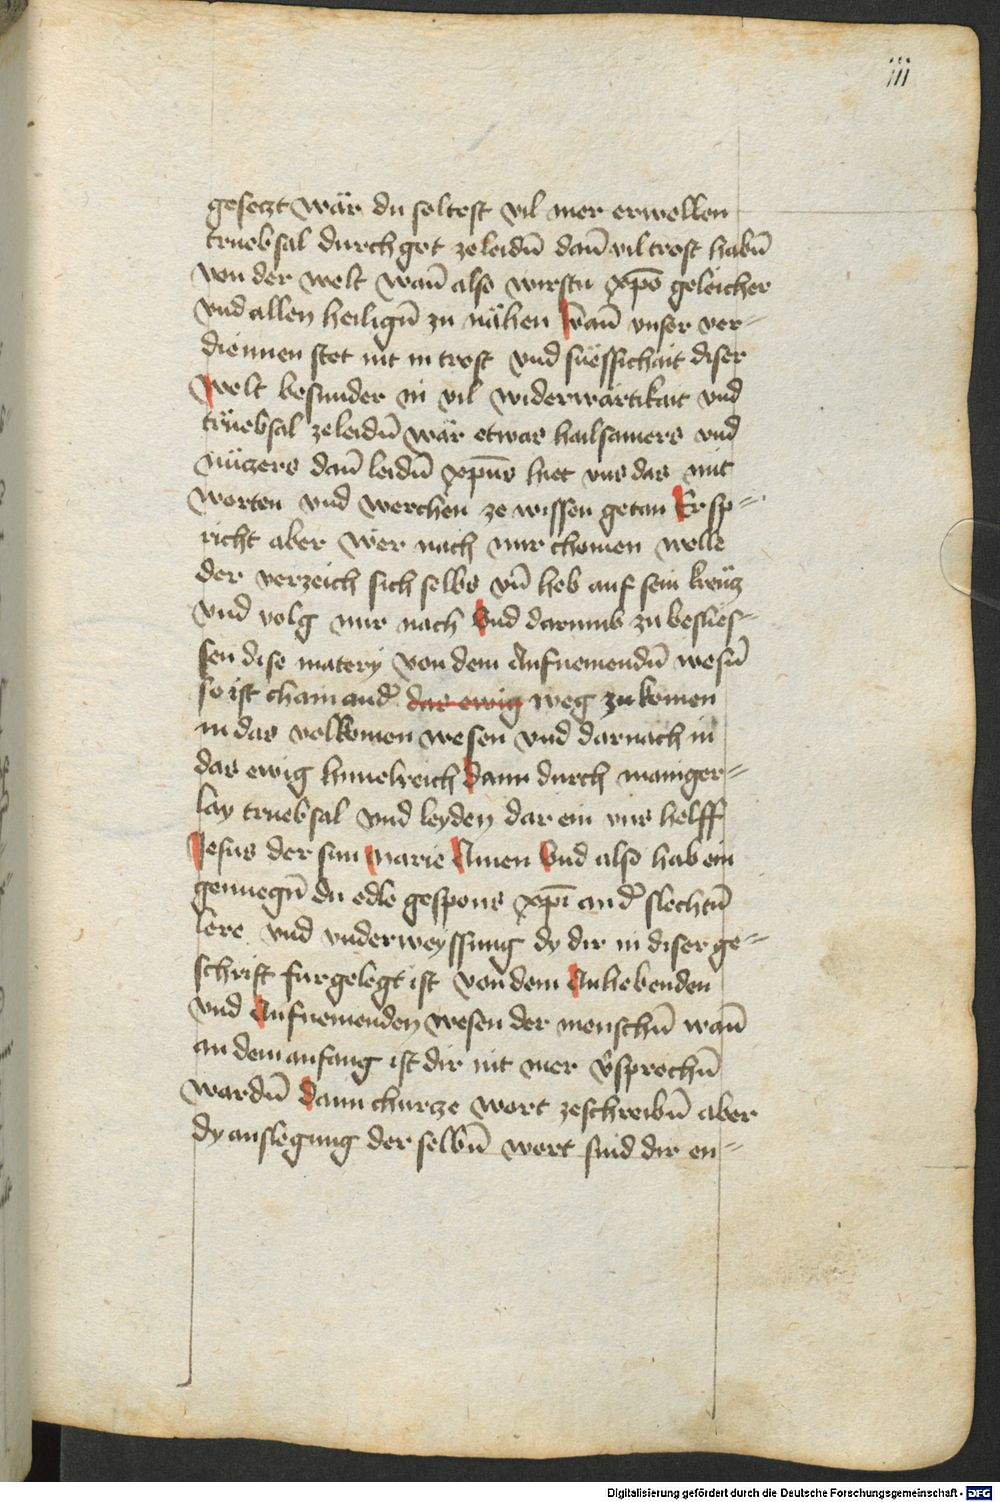 iii
gesetzt wär du soltest vil mer erwellen
truebsal durch got ze leidn̄ dan̄ vil trost habn̄
von der welt wan̄ also wirstu xpō geleicher
vnd allen heilign̄ zu nähen wan̄ vnser ver=
diennen stet nit in trost vnd süessichait diser
welt besunder in vil widerwärtikait vnd
trüebsal ze leidn̄ wär etwas hailsamers vnd
nützers dan̄ leidn̄ xpūs hiet vns das mit
worten vnd werchen ze wissen getan Er sp=
richt aber wer nach mir chomen welle
der verzeich sich selbs vn̄ heb auf sein kreütz
vnd volg mir nach Vnd darumb zu beslies=
sen dise matery von dem Aufnemendn̄ wesn̄
so ist chain and̓ das ewig weg zu komen
in das volkomen wesen vnd darnach in
das ewig himelreich dann durch maniger=
lay truebsal vnd leyden dar ein vns helff
Jesus der sun marie Amen Vnd also hab ein
genuegn̄ du edle gespons xpī an d̓ slechtn̄
lere vnd vnderweyssung dy dir in diser ge=
schrift furgelegt ist von dem Anhebenden
vnd Aufnemenden wesen der menschn̄ wan̄
an dem anfang ist dir nit mer v̓sprochn̄
wardn̄ dann churtze wort ze schreibn̄ aber
dy auslegung der selbn̄ wort sind dir en=
Digitalisierung gefördert durch die Deutsche Forschungsgemeinschaft - DFG